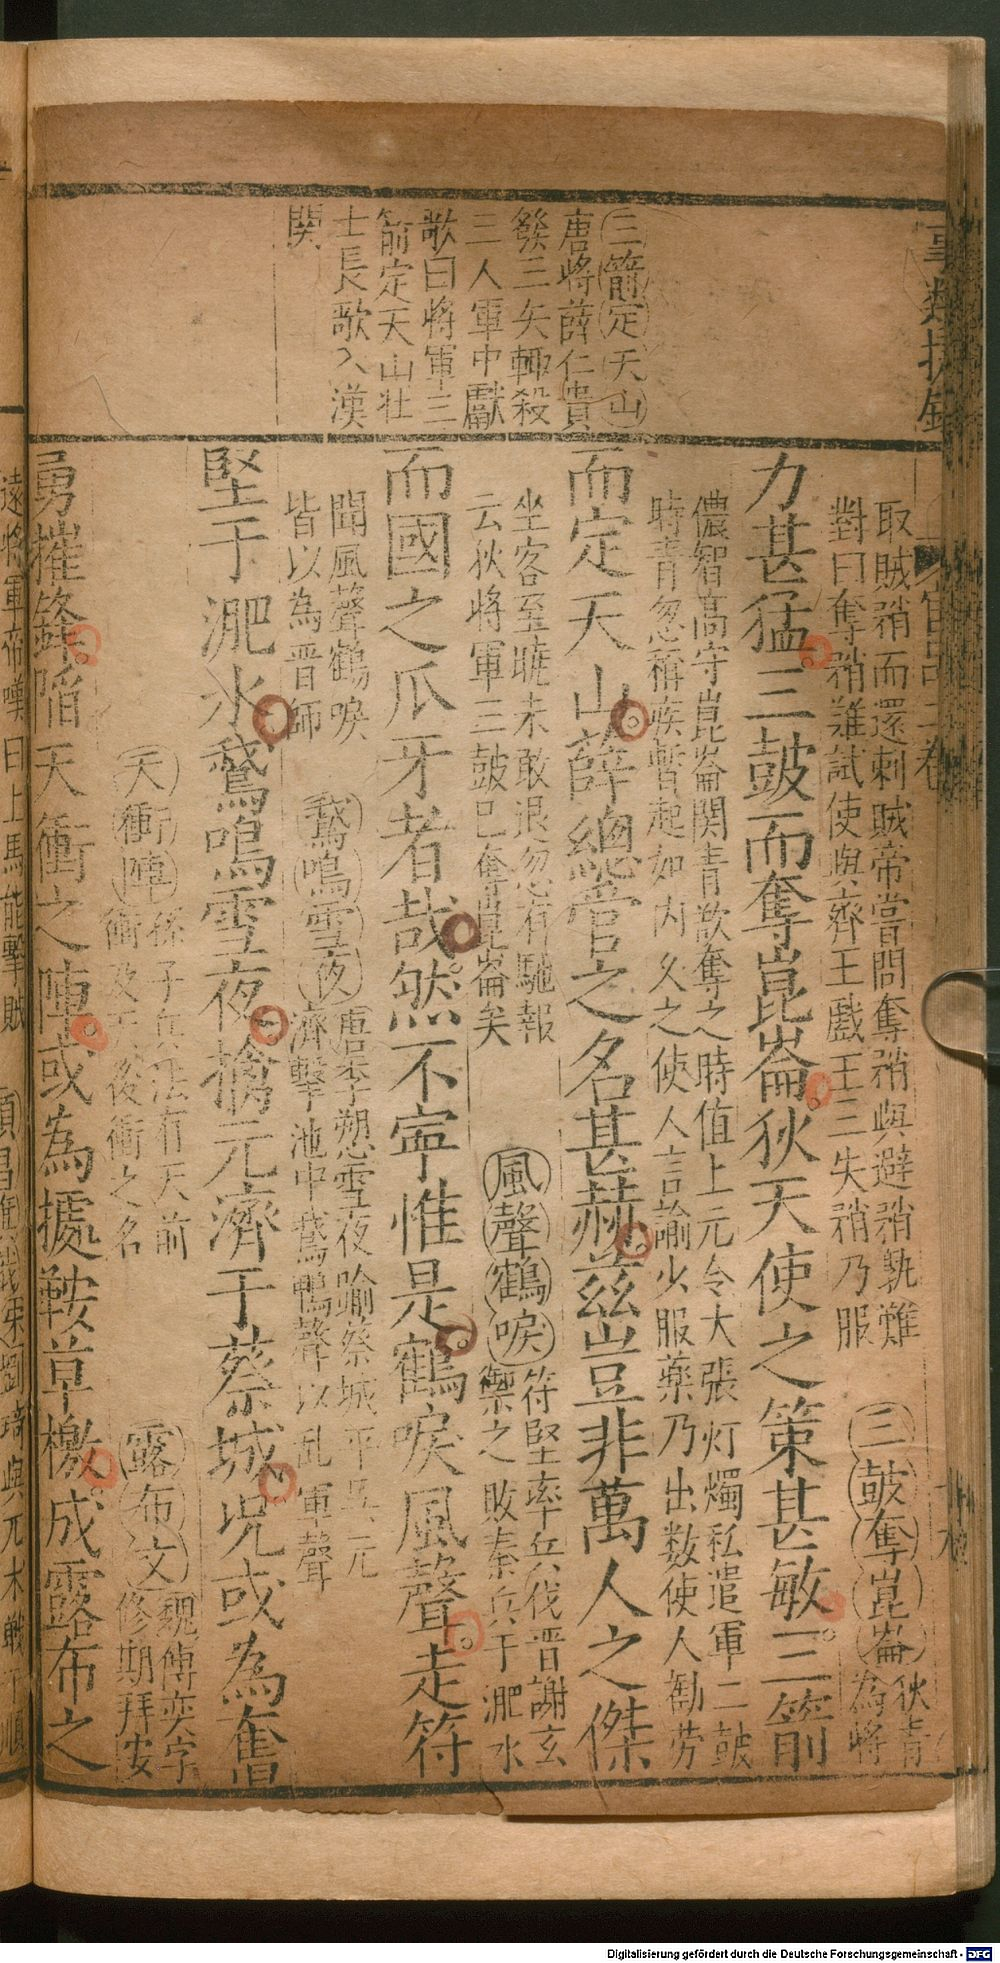 三箭定天山
唐將薛仁貴
發三矢輙殺
三人軍中獻
歌曰將軍三
箭定天山壮
士長歌入漢
関
取賊矟而還刺賊帝嘗問奪矟與避矟孰難
對曰奪矟難試使與齊王戲王三失矟乃服
三皷奪崑崙
狄青
為將
力甚猛三皷而奪崑崙狄天使之策甚敏三箭
儂智高守崑崙関青欲奪之時值上元令大張灯燭私遣軍二皷
時青忽稱疾暫起如内久之使人言諭少服藥乃出数使人勸劳
而定天山薛總管之名甚赫兹豈非萬人之傑
坐客至曉未敢退忽有馳報
云狄將軍三皷已奪崑崙矣
風聲鶴唳
符堅率兵伐晋謝玄
禦之敗秦兵于淝水
而國之爪牙者哉然不寧惟是鶴唳風聲走符
聞風聲鶴唳
皆以為晋師
鵞鳴雪夜
唐李愬雪夜喻蔡城平吳元
濟擊池中鵞鴨聲以乱軍聲
堅于淝水鵞鳴雪夜擒元濟于蔡城况或為奮
天衝陣
孫子兵法有天前
衝及天後衝之名
露布文
魏傅奕字
修期拜安
勇摧鋒陷天衝之陣或為據鞍草檄成露布之
Digitalisierung gefördert durch die Deutsche Forschungsgemeinschaft - DFG